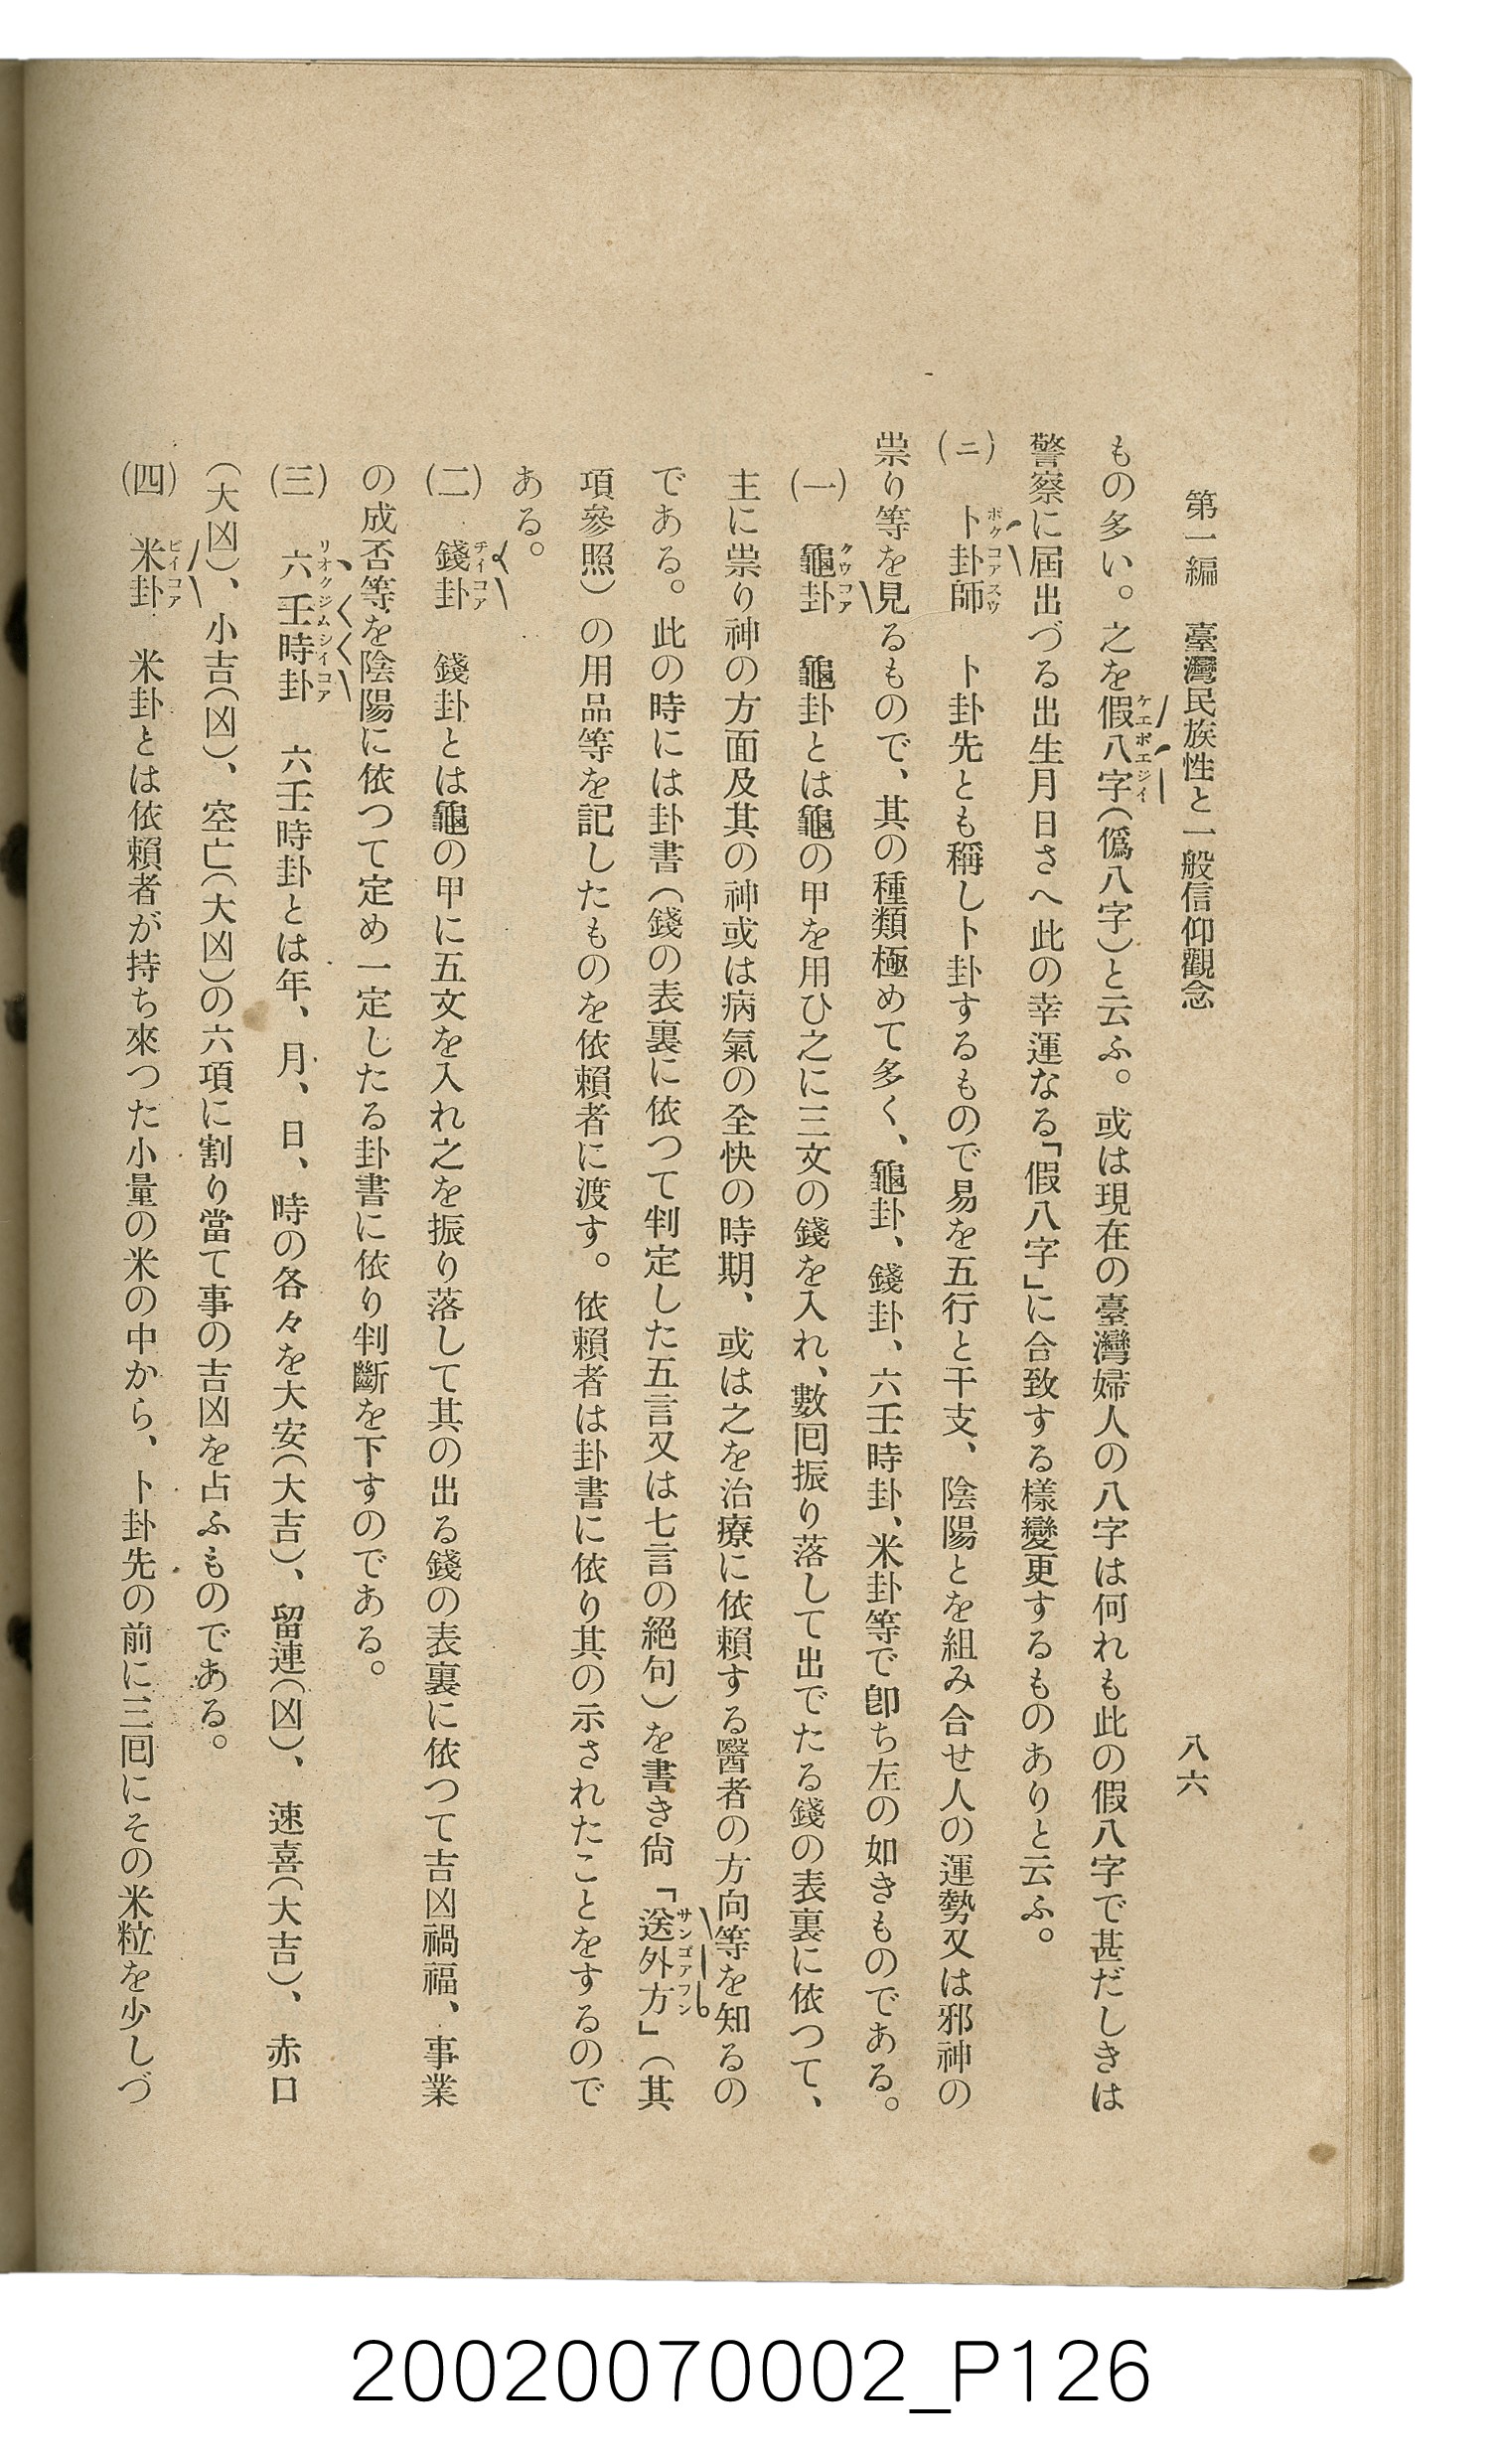 第一編　臺灣民族性と一般信仰觀念　八六
もの多い。之を假八字(僞八字)と云ふ。或は現在の臺灣婦人の八字は何れも此の假八字で甚だしきは
ケエポエジイ
警察に屆出づる出生月日さへ此の幸運なる「假八字」に合致する樣變更するものありと云ふ。
(ニ)　卜卦師　卜卦先とも稱し卜卦するもので易を五行と干支、陰陽とを組み合せ人の運勢又は邪神の
ポクコアスウ
祟り等を見るもので、其の種類極めて多く、龜卦、錢卦、六壬時卦、米卦等で卽ち左の如きものである。
(一)　龜卦　龜卦とは龜の甲を用ひ之に三文の錢を入れ、數囘振り落して出でたる錢の表裏に依つて、
クウコア
主に祟り神の方面及其の神或は病氣の全快の時期、或は之を治療に依賴する醫者の方向等を知るの
である。此の時には卦書(錢の表裏に依つて判定した五言又は七言の絕句)を書き尙「送外方」(其
サンゴアフン
項參照)の用品等を記したものを依賴者に渡す。依賴者は卦書に依り其の示されたことをするので
ある。
(二)　錢卦　錢卦とは龜の甲に五文を入れ之を振り落して其の出る錢の表裏に依つて吉凶禍福、事業
チイコア
の成否等を陰陽に依つて定め一定したる卦書に依り判斷を下すのである。
(三)　六壬時卦　六壬時卦とは年、月、日、時の各々を大安(大吉)、留連(凶)、速喜(大吉)、赤口
リオクジムシイコア
(大凶)、小吉(凶)、空亡(大凶)の六項に割り當て事の吉凶を占ふものである。
(四)　米卦　米卦とは依賴者が持ち來つた小量の米の中から、卜卦先の前に三囘にその米粒を少しづ
ビイコア
20020070002_P126